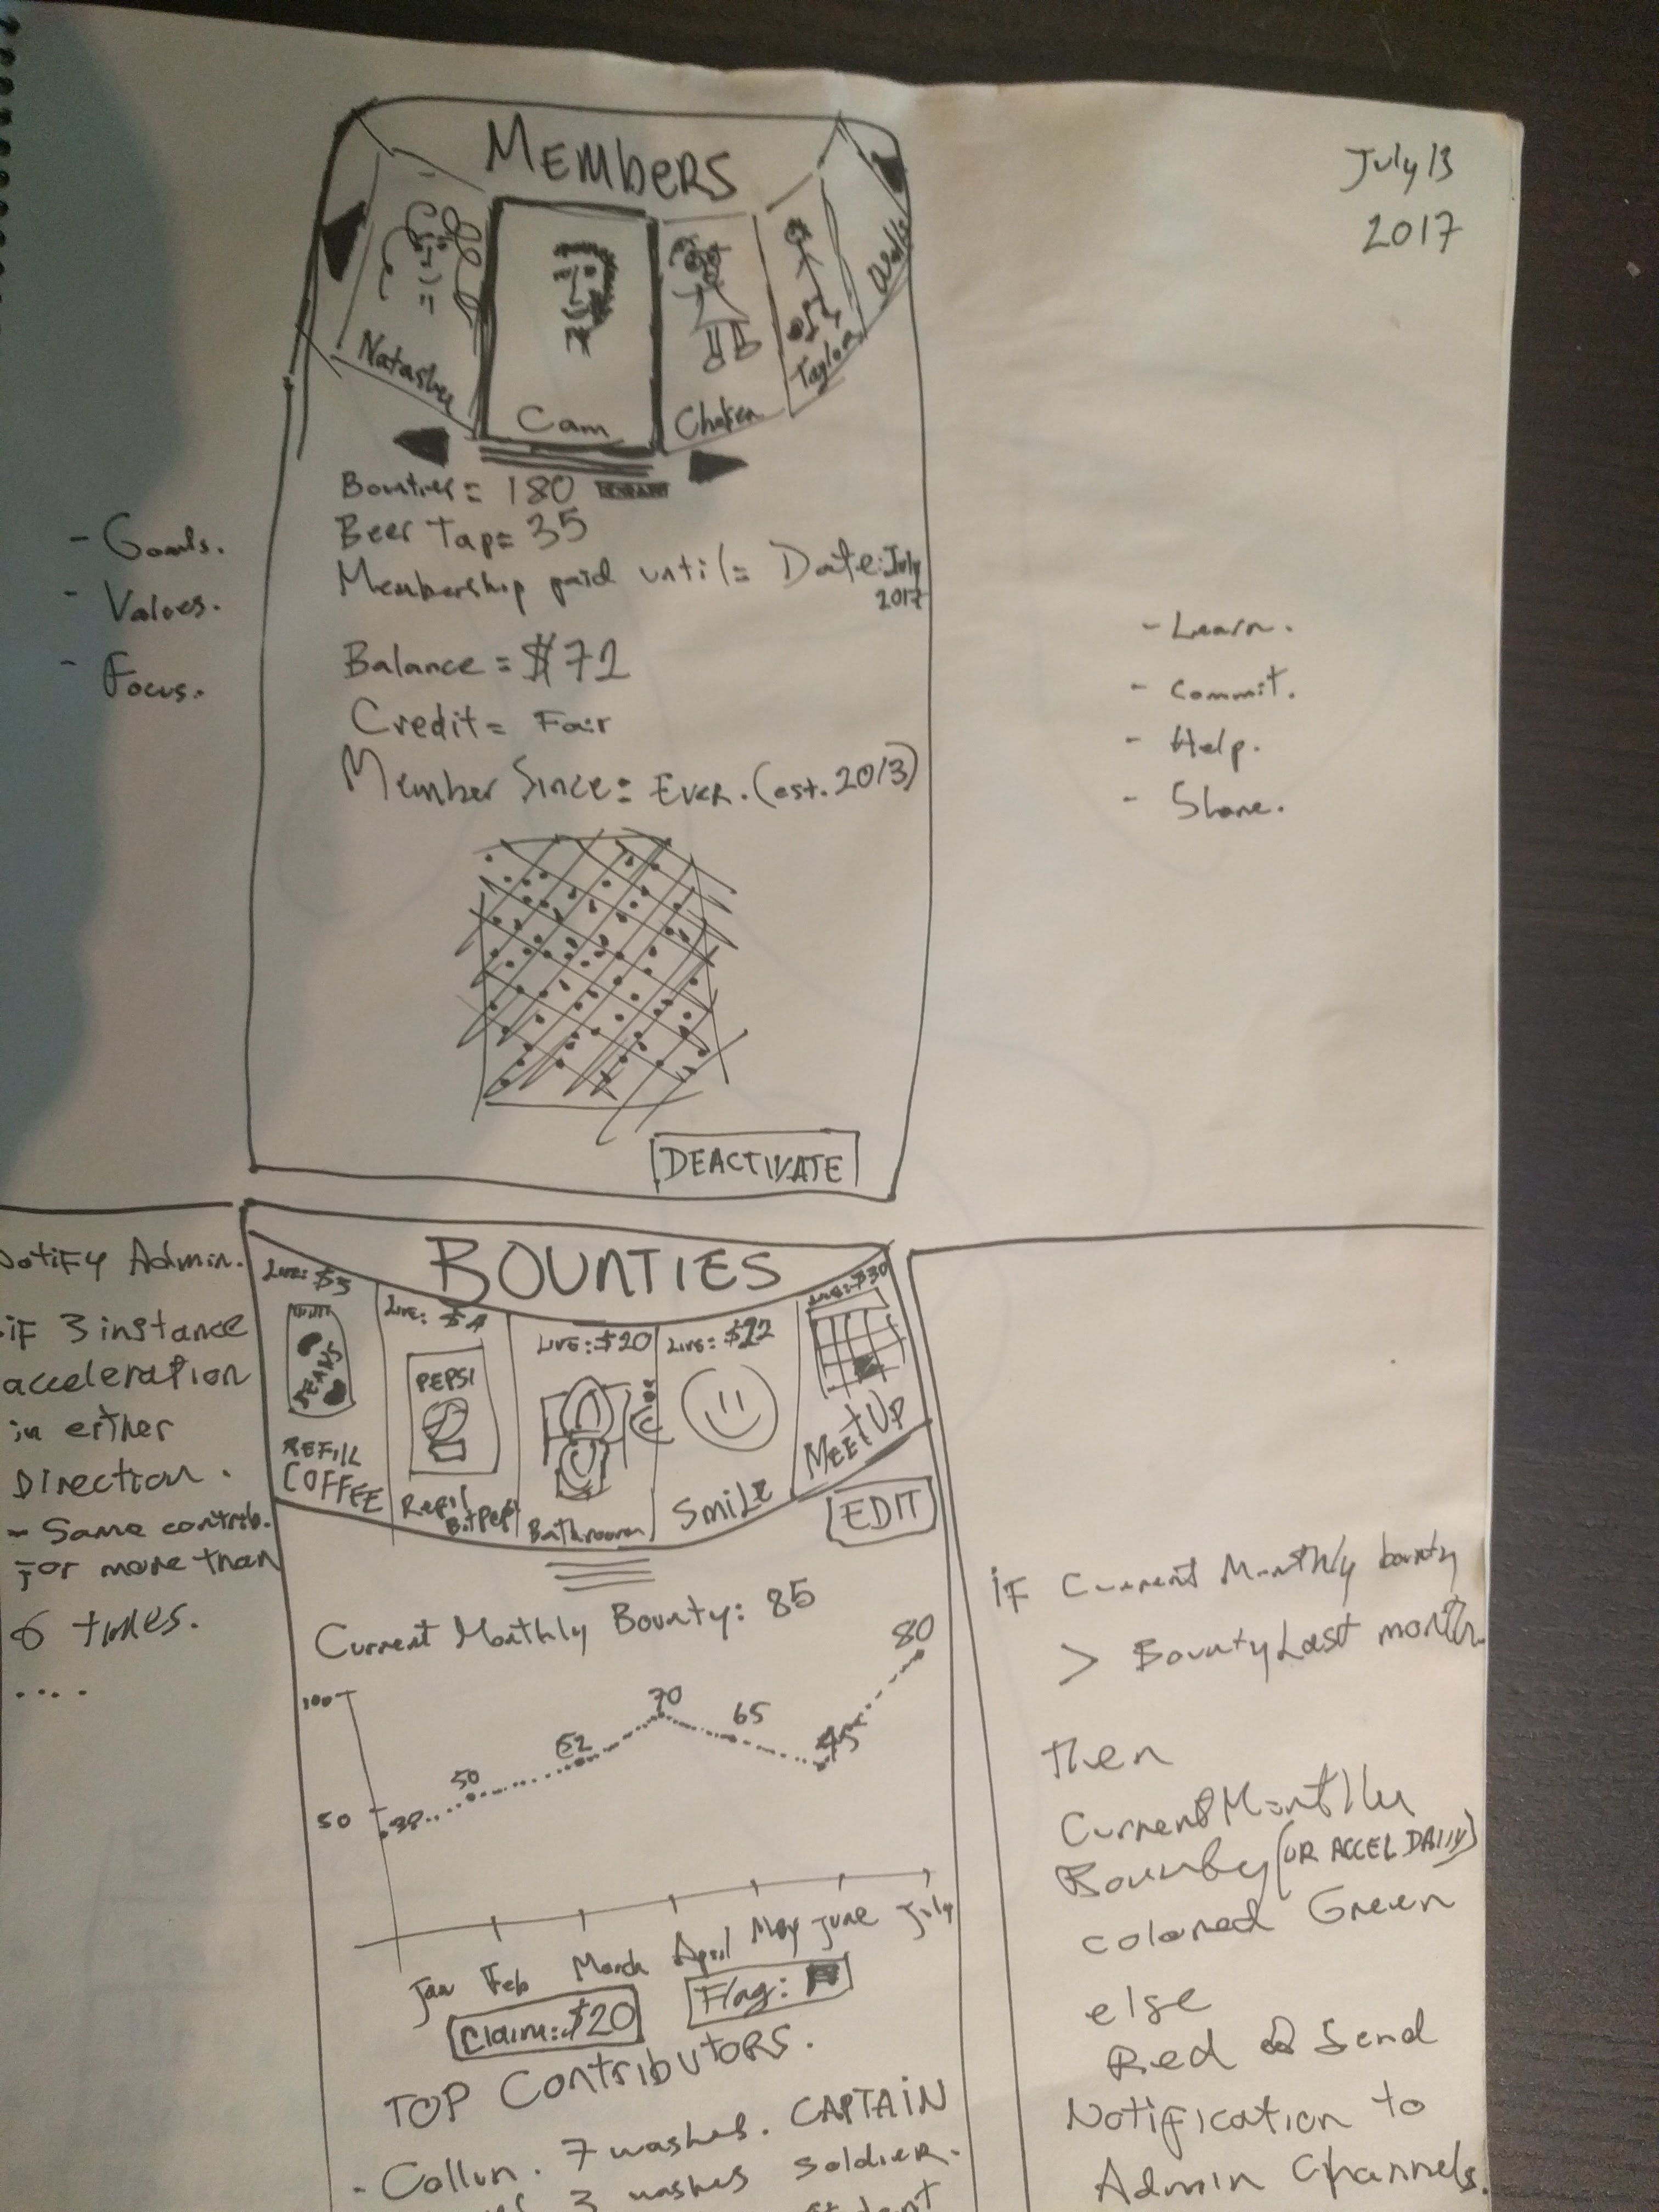 July 13
2017
MEMBERS
Natasha
Cam
Chelsea
Taylor
Bounties = 180
Beer Tap = 35
Membership paid until = Date: July
2017
Balance = $72
Credit = Fair
Member Since = EVER. (est. 2013)
DEACTIVATE
- Goals.
- Values.
- Focus.
- Learn.
- Commit.
- Help.
- Share.
Notify Admin.
if 3 instance
acceleration
in either
Direction.
- Same contrib.
For more than
6 times.
....
BOUNTIES
LIVE: $3
BEANS
REFILL
COFFEE
LIVE:
PEPSI
Refill
BitPepsi
LIVE: $20
Bathroom
LIVE: $22
SMILE
LIVE: $30
MEETUP
EDIT
Current Monthly Bounty: 85
100
50
38
50
62
70
65
45
80
Jan Feb March April May June July
Claim: $20
Flag:
TOP CONTRIBUTORS.
- Collin. 7 washes. CAPTAIN
3 washes soldier.
if Current Monthly bounty
> Bounty Last month.
then
Current Monthly
Bounty (OR ACCEL DAILY)
colored Green
else
Red & Send
Notification to
Admin Channels.